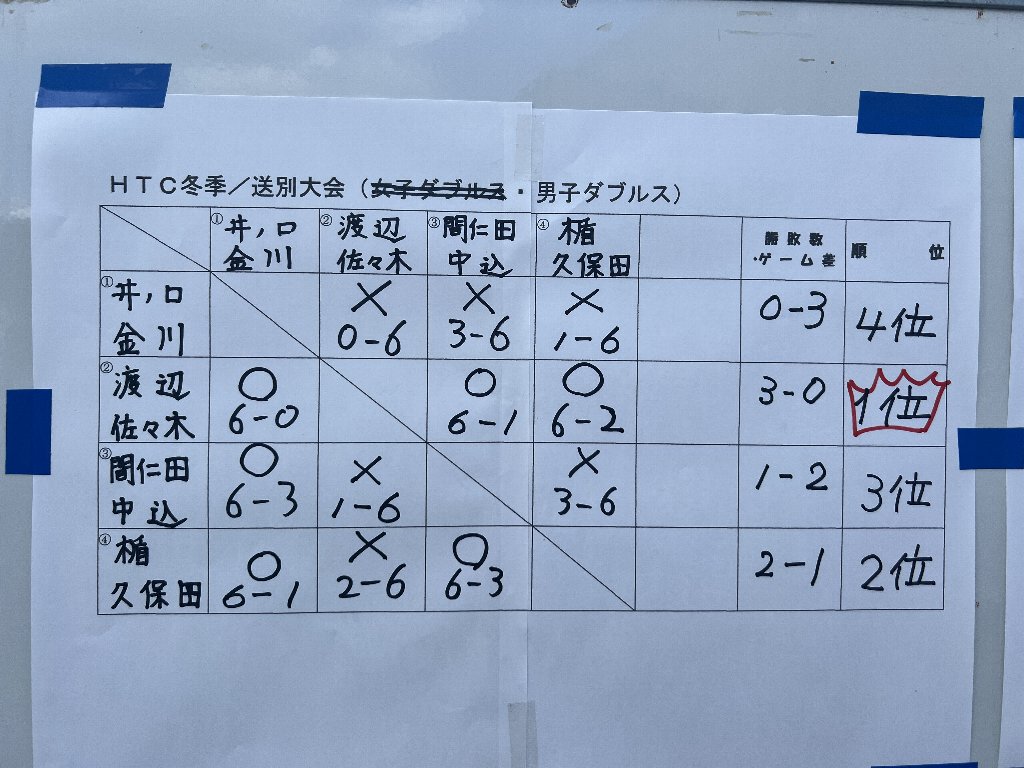 HTC冬季／送別大会（女子ダブルス・男子ダブルス）
① 井ノ口 ② 渡辺 ③ 間仁田 ④ 楯 勝敗数 順位
金川 佐々木 中込 久保田 ・ゲーム差
① 井ノ口 × × × 0-3 4位
金川 0-6 3-6 1-6
② 渡辺 ○ ○ ○ 3-0 1位
佐々木 6-0 6-1 6-2
③ 間仁田 ○ × × 1-2 3位
中込 6-3 1-6 3-6
④ 楯 ○ × ○ 2-1 2位
久保田 6-1 2-6 6-3